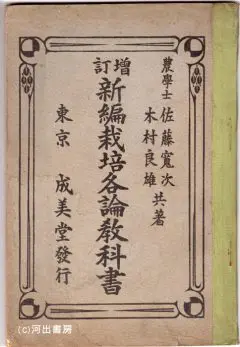 農學士 佐藤寬次
木村良雄 共著
増訂 新編栽培各論教科書
東京 成美堂發行
(c)河出書房